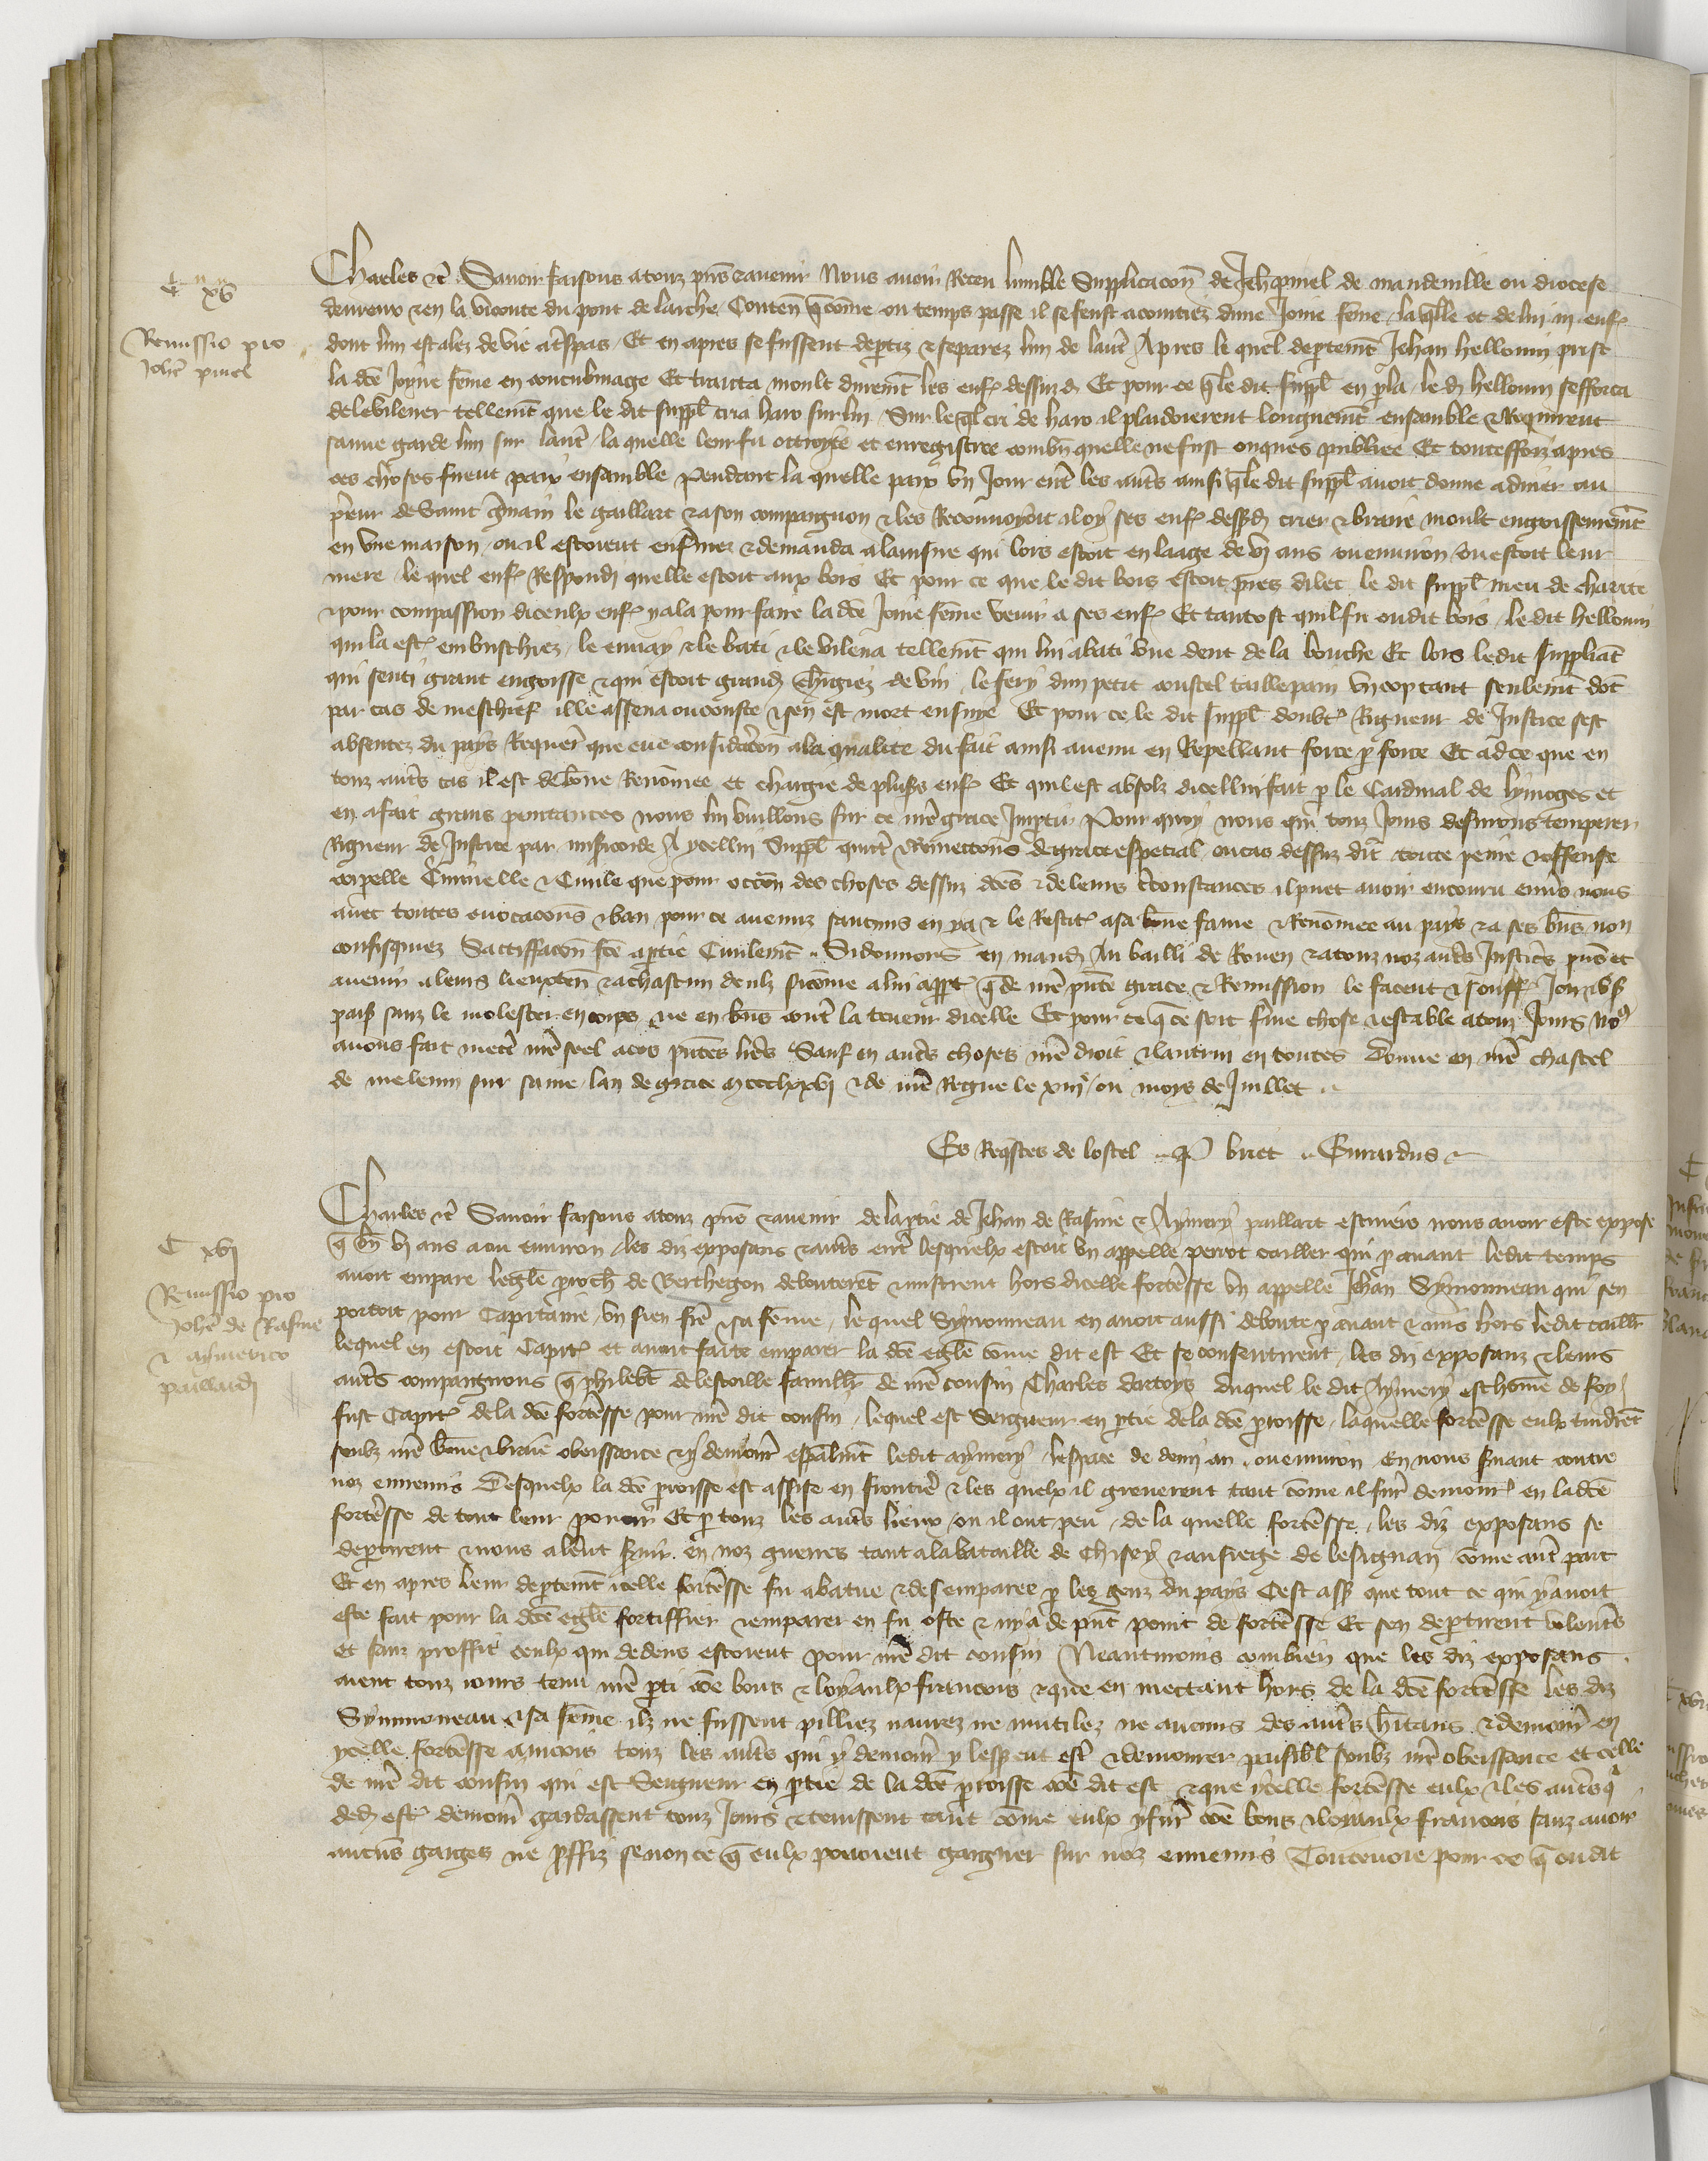 C xv
Remissio pro
Johe pinel
Charles etc Savoir faisons a touz pns et avenir Nous avoir receu humble supplicacon de Jeh pinel de mandeville ou diocese
devreux et en la viconte du pont de larche Conten que come ou temps passe il se feust acointiez dune Joine feme la qlle et de lui enf
dont lun est alez de vie a trespas Et en apres se fussent deptiz et separez lun de lautre Apres le quel deptemt Jehan hellouin prist
la dce Joyne feme en concubinage Et traicta moult duremt les enf dessusd Et pour ce q le dit suppl en pla le d hellouin sefforca
de le vilener tellemt que le dit suppl cria haro sur lui Sur le ql cri de haro il plaidoierent longuemt ensamble et Requirent
sauve garde lun sur lautre la quelle leur fu ottroyee et enregistree combn quelle ne fust onques publiee Et toutesfoiz apres
ces choses furent paix ensamble Pendant la quelle paix un Jour entre les autres ainsi q le dit suppl avoit donne a diner au
prieur de Saint Germain le gaillart et a son compaignon et les Reconvoyoit il oy ses enf dessusd crier et braire moult engoissement
en une maison ou il estoient enfermez et demanda a lainsne qui lors estoit en laage de vj ans ou environ ou estoit leur
mere le quel enf Respondi quelle estoit aux bois Et pour ce que le dit bois estoit pres dilec le dit suppl meu de charite
et pour compassion diceulx enf y ala pour faire la dce Joine feme venir a ses enf Et tantost quil fu oudit bois le dit hellouin
qui la est embuschiez le envay et le bati et le vilena tellemt qui lui abati une dent de la bouche Et lors ledit suppliant
qui senti grant engoisse et qui estoit grand chargiez de vin le fery dun petit coustel taillepain un cop tant seulemt dot
par cas de meschief il le assena ou coste et sen est mort ensuye Et pour ce le dit suppl doubt Rigueur de Justice sest
absentez du pays Requer que eue consideracon a la qualite du fait ainsi avenu en Repellant force p force Et ad ce que en
touz autres cas il est de bone Renommee et chargie de plusrs enf Et quil est absolz dicellui fait p le Cardinal de lymoges et
en a fait grans penitances nous lui vuillons sur ce nre grace Impartir Pour quoy nous qui touz Jours desirrons temperer
Rigueur de Justice par misericorde A ycellui Suppl quictons et Remectons de grace especial ou cas dessus dit toute peine et offense
corpelle Criminelle et Civile que pour occon des choses dessuz dces et de leurs circonstances il puet avoir encouru envers nous
avec toutes evocacons et ban pour ce avenuz saucuns en ya et le Restit a sa bone fame et Renommee au pays et a ses bns non
confisquez Sattiffacon fce a ptie Civilemt Si donnons en mand Au bailli de Rouen et a touz noz autres Justiciers pns et
avenir a leurs lieuxten et a chascun deulx si come a lui appt q de nre pnte grace et Remission le facent et seuff Joir et us
paisi sanz le molester en corps ne en bns contre la teneur dicelle Et pour ce q ce soit ferme chose et estable a touz Jours Nous
avons fait mectre nre seel a ces pntes lres Sauf en autres choses nre droit et lautrui en toutes Donne en nre chastel
de meleun sur saine lan de grace mccclxxvj et de nre Regne le xiije ou moys de Juillet
Es Reqstes de lostel P briet Gerardus
C xvj
Remissio pro
Johe de Rasine
et aymerico
paillardi
Charles etc Savoir faisons a touz pns et avenir de la ptie de Jehan de Rasine et Aymery paillart escuiers nous avoir este expose
q bn vj ans a ou environ les diz exposans et autres entre lesquelx estoit un appelle perrot cailler qui p avant ledit temps
avoit empare leglise proch de Berthegon debouterent et mistrent hors dicelle forteresse un appelle Jehan Symonneau qui sen
portoit pour Capitaine un sien frere et sa feme le quel Symonneau en avoit aussi deboute p avant et mis hors ledit caillr
lequel en estoit Capit et avoit faite emparer la dce eglise come dit est Et se consentirent les diz exposanz et leurs
autres compaignons q philebt de lescaille famillier de nre cousin Charles dartoys duquel le dit Aymery est home de foy
fust Capit de la dce forteresse pour nre dit cousin lequel est Seigneur en ptie de la dce proisse laquelle forteresse eulx tindrent
soubz nre bone et vraie obeissance et y demoure espalmt ledit aymery lespace de demi an ou environ En nous servant contre
noz ennemis Desquelx la dce proisse est assise en frontiere et les quelx il greverent tant come il fur demour en la dce
forteresse de tout leur povoir Et p touz les autres lieux ou il ont peu de la quelle forteresse les diz exposans se
deptirent et nous alerent servir en noz guerres tant a la bataille de Chisey et au siege de lesignan come autre part
Et en apres leur deptemt icelle forteresse fu abatue et desemparee p les genz du pays Cest ass que tout ce qui y avoit
este fait pour la dce eglise fortiffier et emparer en fu oste et ny a de pnt point de forteresse Et sen deptirent volentrs
et sanz proffit ceulx qui dedens estoient pour nre dit cousin Neantmoins combien que les diz exposans
aient touz iours tenu nre pti coe bons et loyaulx francois et que en mectant hors de la dce forteresse les diz
Symmoneau et sa feme ilz ne fussent pilliez navrez ne mutilez ne aucuns des autres hitans et demour en
ycelle forteresse aincois touz les autres qui y demour y lesserent estre et demourer paisibl soubz nre obeissance et celle
de nre dit cousin qui est Seigneur en ptie de la dce proisse coe dit est et que ycelle forteresse eulx et les autres q
ded est demour gardassent touz Jours et tenissent tant come eulx y fur coe bons et loyaulx francois sanz avoir
aucuns gaiges ne proffiz se non ce q eulx povoient gaigner sur noz ennemis Toutevoie pour ce q ou dit